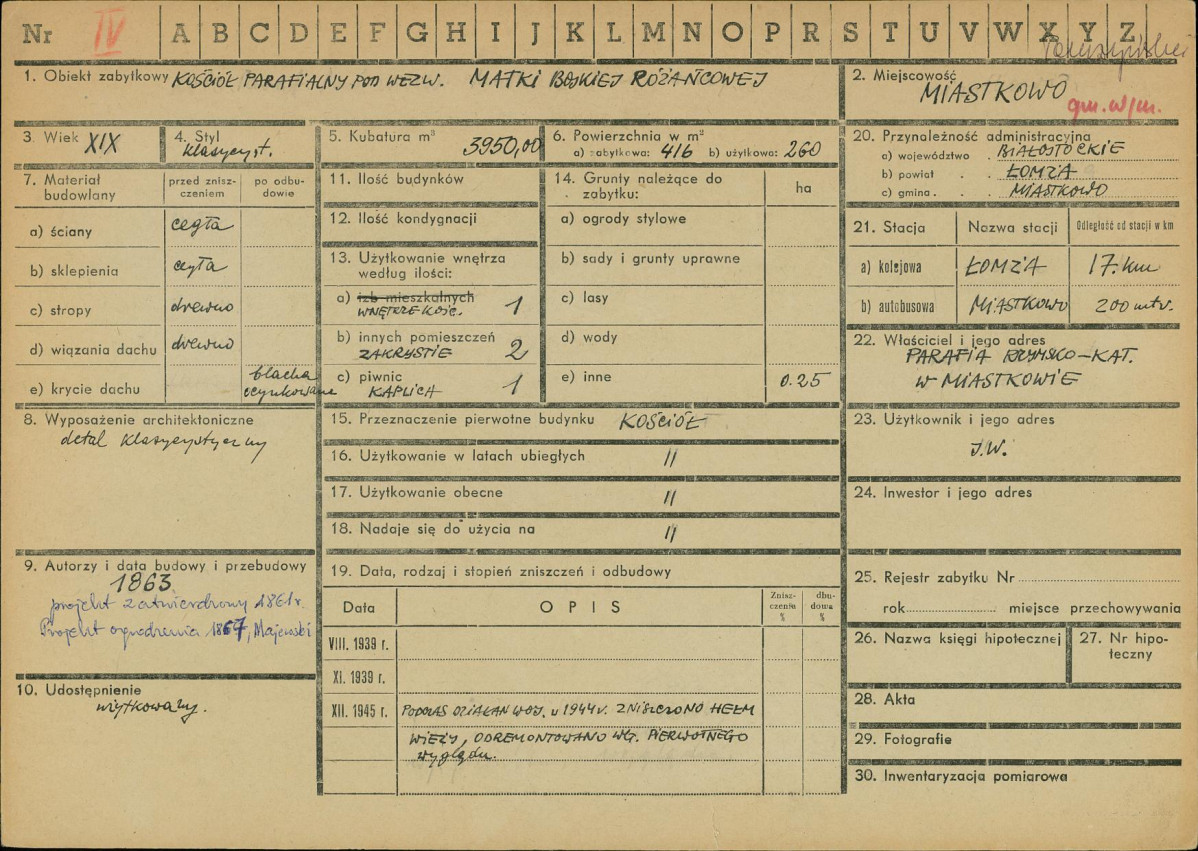 Nr IV A B C D E F G H I J K L M N O P R S T U V W X Y Z
1. Obiekt zabytkowy KOŚCIÓŁ PARAFIALNY POD WEZW. MATKI BOSKIEJ RÓŻAŃCOWEJ
2. Miejscowość
MIASTKOWO
gm. w/m.
3. Wiek XIX
4. Styl
klasycyst.
5. Kubatura m³ 3950,00
6. Powierzchnia w m²
a) zabytkowa: 416 b) użytkowa: 260
7. Materiał budowlany
przed znisz-
czeniem
po odbu-
dowie
a) ściany cegła
b) sklepienia cegła
c) stropy drewno
d) wiązania dachu drewno
e) krycie dachu blacha
ocynkowane
8. Wyposażenie architektoniczne
detal klasycystyczny
9. Autorzy i data budowy i przebudowy
1863
projekt zatwierdzony 1861 r.
Projekt ogrodzenia 1867, Majewski
10. Udostępnienie
użytkowany.
11. Ilość budynków
12. Ilość kondygnacji
13. Użytkowanie wnętrza
według ilości:
a) izb mieszkalnych
WNĘTRZE KOŚC. 1
b) innych pomieszczeń
ZAKRYSTIE 2
c) piwnic
KAPLICH 1
14. Grunty należące do
zabytku:
ha
a) ogrody stylowe
b) sady i grunty uprawne
c) lasy
d) wody
e) inne 0.25
15. Przeznaczenie pierwotne budynku KOŚCIÓŁ
16. Użytkowanie w latach ubiegłych //
17. Użytkowanie obecne //
18. Nadaje się do użycia na //
19. Data, rodzaj i stopień zniszczeń i odbudowy
Data OPIS
Znisz-
czenia
%
dbu-
dowa
%
VIII. 1939 r.
XI. 1939 r.
XII. 1945 r. PODCZAS DZIAŁAŃ WOJ. w 1944 r. ZNISZCZONO HEŁM
WIEŻY, ODREMONTOWANO WG. PIERWOTNEGO
wyglądu.
20. Przynależność administracyjna
a) województwo BIAŁOSTOCKIE
b) powiat ŁOMŻA
c) gmina MIASTKOWO
21. Stacja Nazwa stacji Odległość od stacji w km
a) kolejowa ŁOMŻA 17. km
b) autobusowa MIASTKOWO 200 mtr.
22. Właściciel i jego adres
PARAFIA RZYMSKO-KAT.
W MIASTKOWIE
23. Użytkownik i jego adres
J.W.
24. Inwestor i jego adres
25. Rejestr zabytku Nr
rok miejsce przechowywania
26. Nazwa księgi hipotecznej
27. Nr hipo-
teczny
28. Akta
29. Fotografie
30. Inwentaryzacja pomiarowa